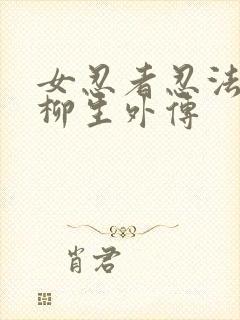 女忍者忍法
柳生外傳
肖君